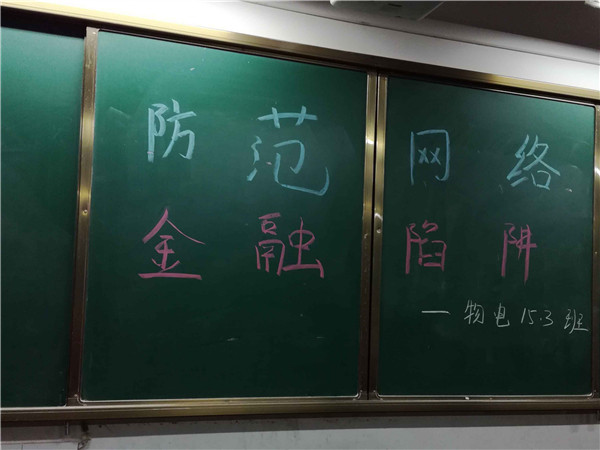 防范网络
金融陷阱
— 物电15.3班